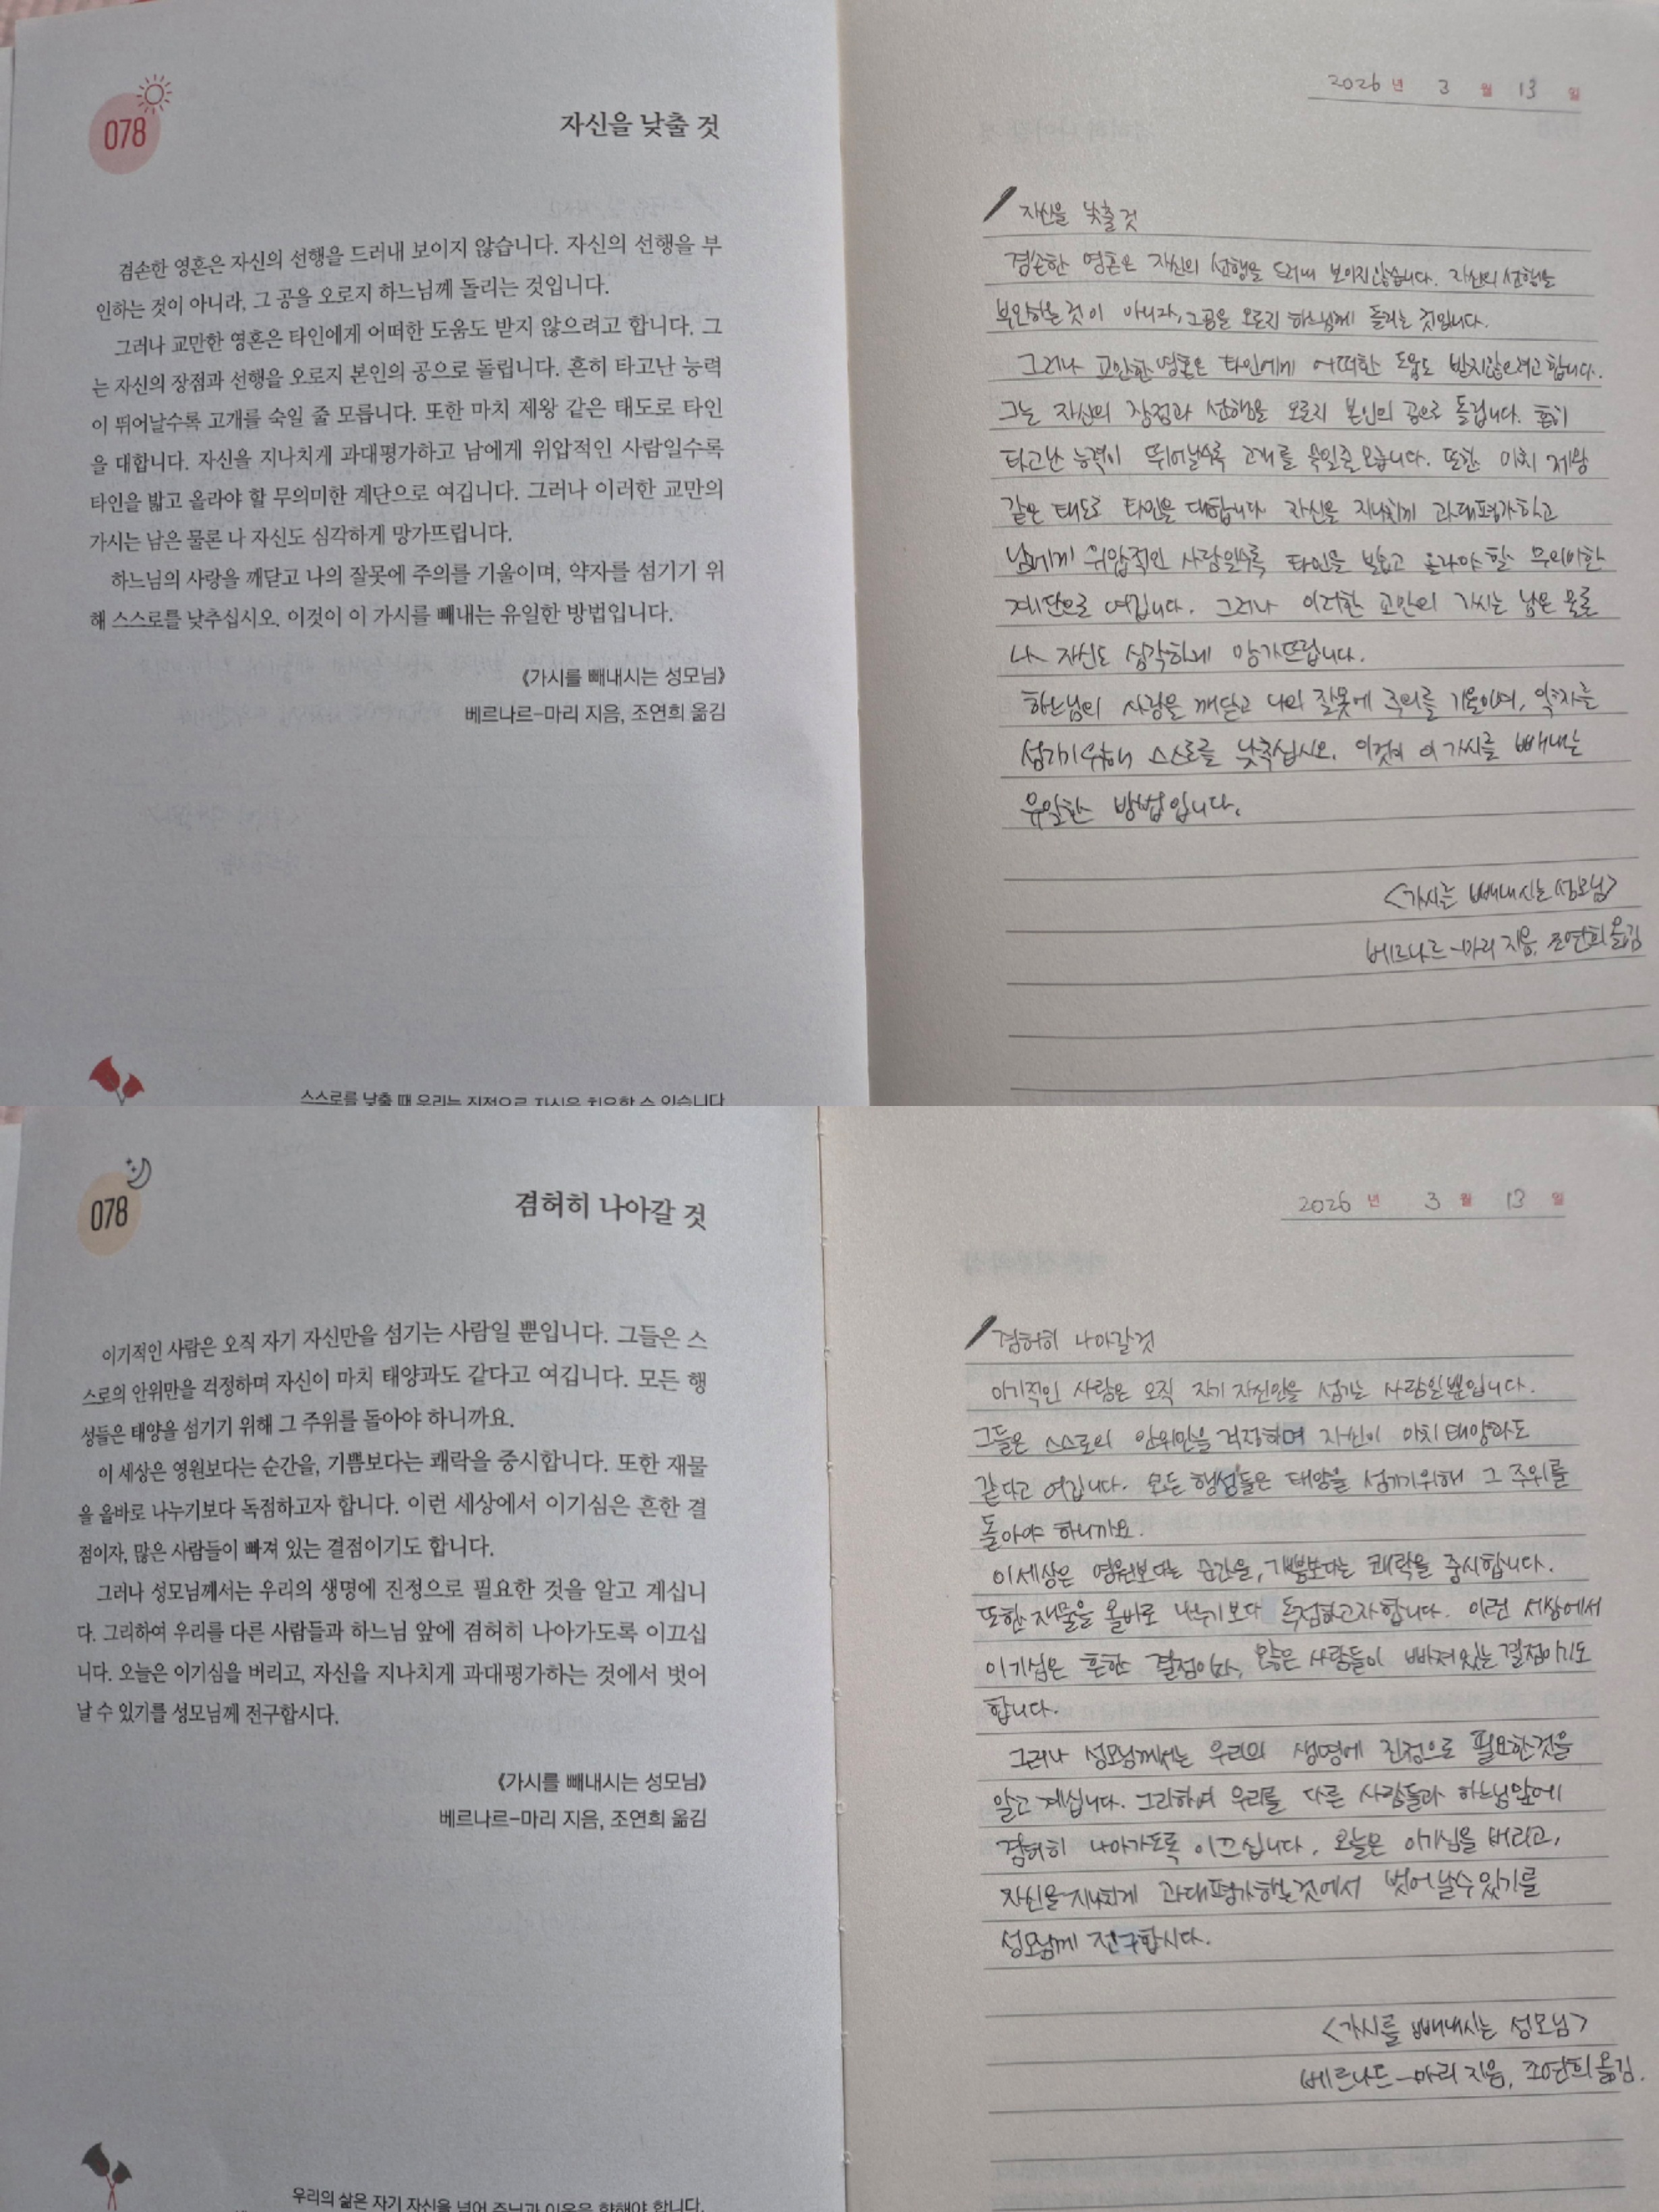 078
자신을 낮출 것
겸손한 영혼은 자신의 선행을 드러내 보이지 않습니다. 자신의 선행을 부
인하는 것이 아니라, 그 공을 오로지 하느님께 돌리는 것입니다.
그러나 교만한 영혼은 타인에게 어떠한 도움도 받지 않으려고 합니다. 그
는 자신의 장점과 선행을 오로지 본인의 공으로 돌립니다. 흔히 타고난 능력
이 뛰어날수록 고개를 숙일 줄 모릅니다. 또한 마치 제왕 같은 태도로 타인
을 대합니다. 자신을 지나치게 과대평가하고 남에게 위압적인 사람일수록
타인을 밟고 올라야 할 무의미한 계단으로 여깁니다. 그러나 이러한 교만의
가시는 남은 물론 나 자신도 심각하게 망가뜨립니다.
하느님의 사랑을 깨닫고 나의 잘못에 주의를 기울이며, 약자를 섬기기 위
해 스스로를 낮추십시오. 이것이 이 가시를 빼내는 유일한 방법입니다.
《가시를 빼내시는 성모님》
베르나르-마리 지음, 조연희 옮김
스스로를 낮출 때 우리는 진정으로 자신을 치유할 수 있습니다
2026년 3월 13일
자신을 낮출 것
겸손한 영혼은 자신의 선행을 드러내 보이지않습니다. 자신의 선행을
부인하는 것이 아니라, 그공을 오로지 하느님께 돌리는 것입니다.
그러나 교만한 영혼은 타인에게 어떠한 도움도 받지않으려고 합니다.
그는 자신의 장점과 선행을 오로지 본인의 공으로 돌립니다. 흔히
타고난 능력이 뛰어날수록 고개를 숙일줄 모릅니다. 또한 마치 제왕
같은 태도로 타인을 대합니다 자신을 지나치게 과대평가하고
남에게 위압적인 사람일수록 타인을 밟고 올라야 할 무의미한
계단으로 여깁니다. 그러나 이러한 교만의 가시는 남은 물론
나 자신도 심각하게 망가뜨립니다.
하느님의 사랑을 깨닫고 나의 잘못에 주의를 기울이며, 약자를
섬기기위해 스스로를 낮추십시오. 이것이 이 가시를 빼내는
유일한 방법입니다.
<가시를 빼내시는 성모님>
베르나르-마리 지음, 조연희 옮김
078
겸허히 나아갈 것
이기적인 사람은 오직 자기 자신만을 섬기는 사람일 뿐입니다. 그들은 스
스로의 안위만을 걱정하며 자신이 마치 태양과도 같다고 여깁니다. 모든 행
성들은 태양을 섬기기 위해 그 주위를 돌아야 하니까요.
이 세상은 영원보다는 순간을, 기쁨보다는 쾌락을 중시합니다. 또한 재물
을 올바로 나누기보다 독점하고자 합니다. 이런 세상에서 이기심은 흔한 결
점이자, 많은 사람들이 빠져 있는 결점이기도 합니다.
그러나 성모님께서는 우리의 생명에 진정으로 필요한 것을 알고 계십니
다. 그리하여 우리를 다른 사람들과 하느님 앞에 겸허히 나아가도록 이끄십
니다. 오늘은 이기심을 버리고, 자신을 지나치게 과대평가하는 것에서 벗어
날 수 있기를 성모님께 전구합시다.
《가시를 빼내시는 성모님》
베르나르-마리 지음, 조연희 옮김
우리의 삶은 자기 자신을 넘어 주님과 이웃을 향해야 합니다.
2026년 3월 13일
겸허히 나아갈것
이기적인 사람은 오직 자기 자신만을 섬기는 사람일뿐입니다.
그들은 스스로의 안위만을 걱정하며 자신이 마치 태양과도
같다고 여깁니다. 모든 행성들은 태양을 섬기기위해 그 주위를
돌아야 하니까요.
이세상은 영원보다는 순간을, 기쁨보다는 쾌락을 중시합니다.
또한 재물을 올바로 나누기보다 독점하고자합니다. 이런 세상에서
이기심은 흔한 결점이자, 많은 사람들이 빠져있는 결점이기도
합니다.
그러나 성모님께서는 우리의 생명에 진정으로 필요한것을
알고 계십니다. 그리하여 우리를 다른 사람들과 하느님앞에
겸허히 나아가도록 이끄십니다. 오늘은 이기심을 버리고,
자신을 지나치게 과대평가하는것에서 벗어날수있기를
성모님께 전구합시다.
<가시를 빼내시는 성모님>
베르나드-마리 지음, 조연희 옮김.